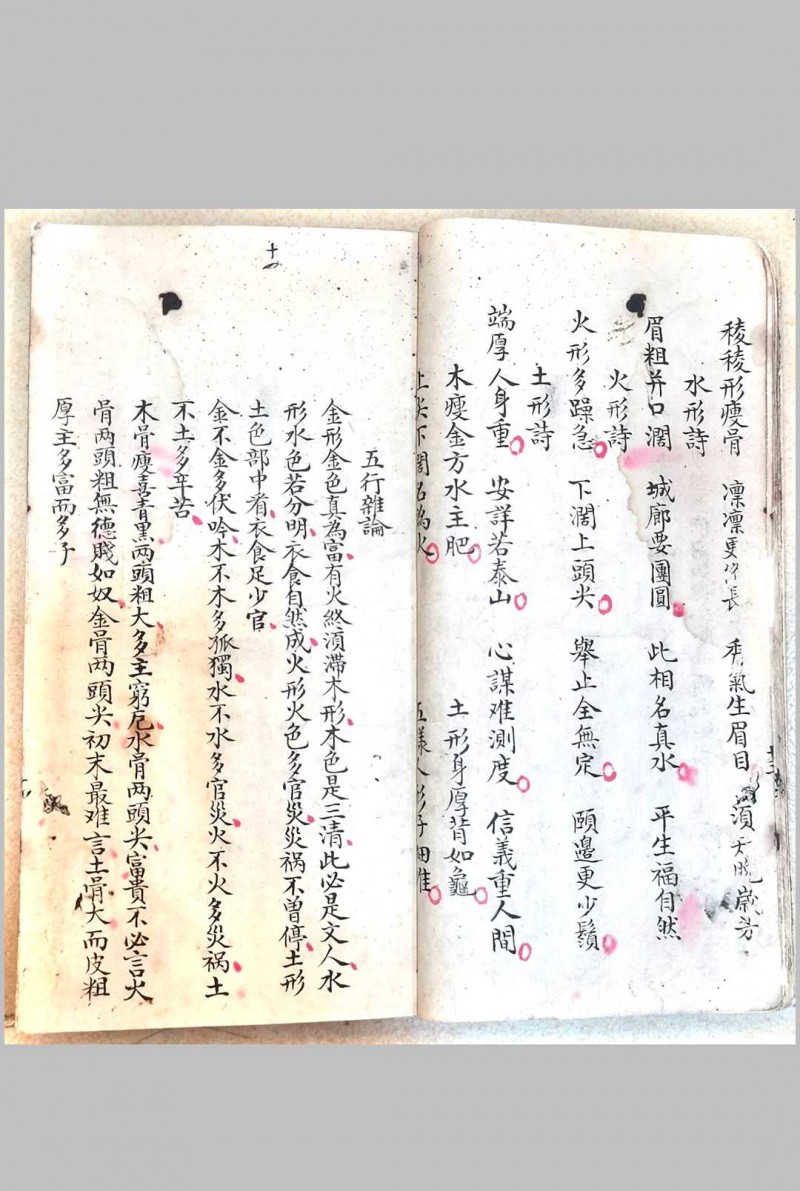 稜稜形瘦骨 凜凜更修長 秀氣生眉目 須知晚歲芳
水形詩
眉粗并口濶 城廊要團圓 此相名真水 平生福自然
火形詩
火形多躁急 下濶上頭尖 舉止全無定 頤邊更少鬚
土形詩
端厚人身重 安詳若泰山 心謀难測度 信義重人間
木瘦金方水主肥 土形身厚背如龜
上尖下濶名為火 五樣人形子細推
十一
五行雜論
金形金色真為富有火終須滯木形木色是三清此必是文人水
形水色若分明衣食自然成火形火色多官災災祸不曾停土形
土色部中看衣食足少官
金不金多伏吟木不木多孤獨水不水多官災火不火多災祸土
不土多辛苦
木骨瘦喜青黑两頭粗大多主窮厄水骨两頭尖富貴不必言火
骨两頭粗無德賤如奴金骨两頭尖初末最难言土骨大而皮粗
厚主多富而多子